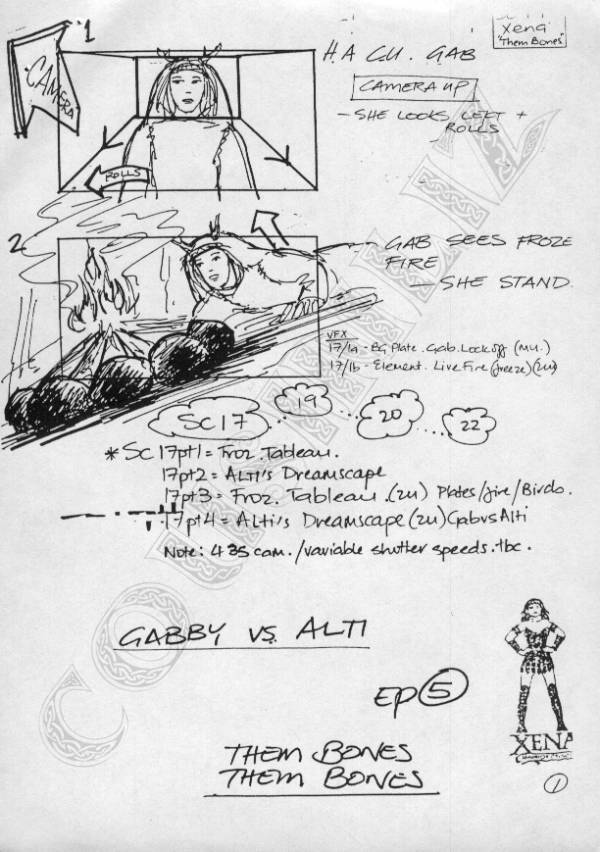 Xena
"Them Bones"
1
CAMERA
H.A CU. GAB
CAMERA UP
- SHE LOOKS LEFT +
ROLLS
ROLLS
2
- GAB SEES FROZE
FIRE
- SHE STAND.
VFX
17/1a - BG Plate. Gab. Lock off (MU.)
17/1b - Element. Live Fire (freeze) (2U)
SC 17 19 ... 20 ... 22
* SC 17pt1 = Froz. Tableau.
17pt2 = ALTI's Dreamscape
17pt3 = Froz. Tableau. (2U) Plates/fire/Birds.
17pt4 = ALTI's Dreamscape (2U) Gab vs Alti
Note: 435 cam. / variable shutter speeds. tbc.
GABBY VS. ALTI
EP 5
THEM BONES
THEM BONES
XENA
1